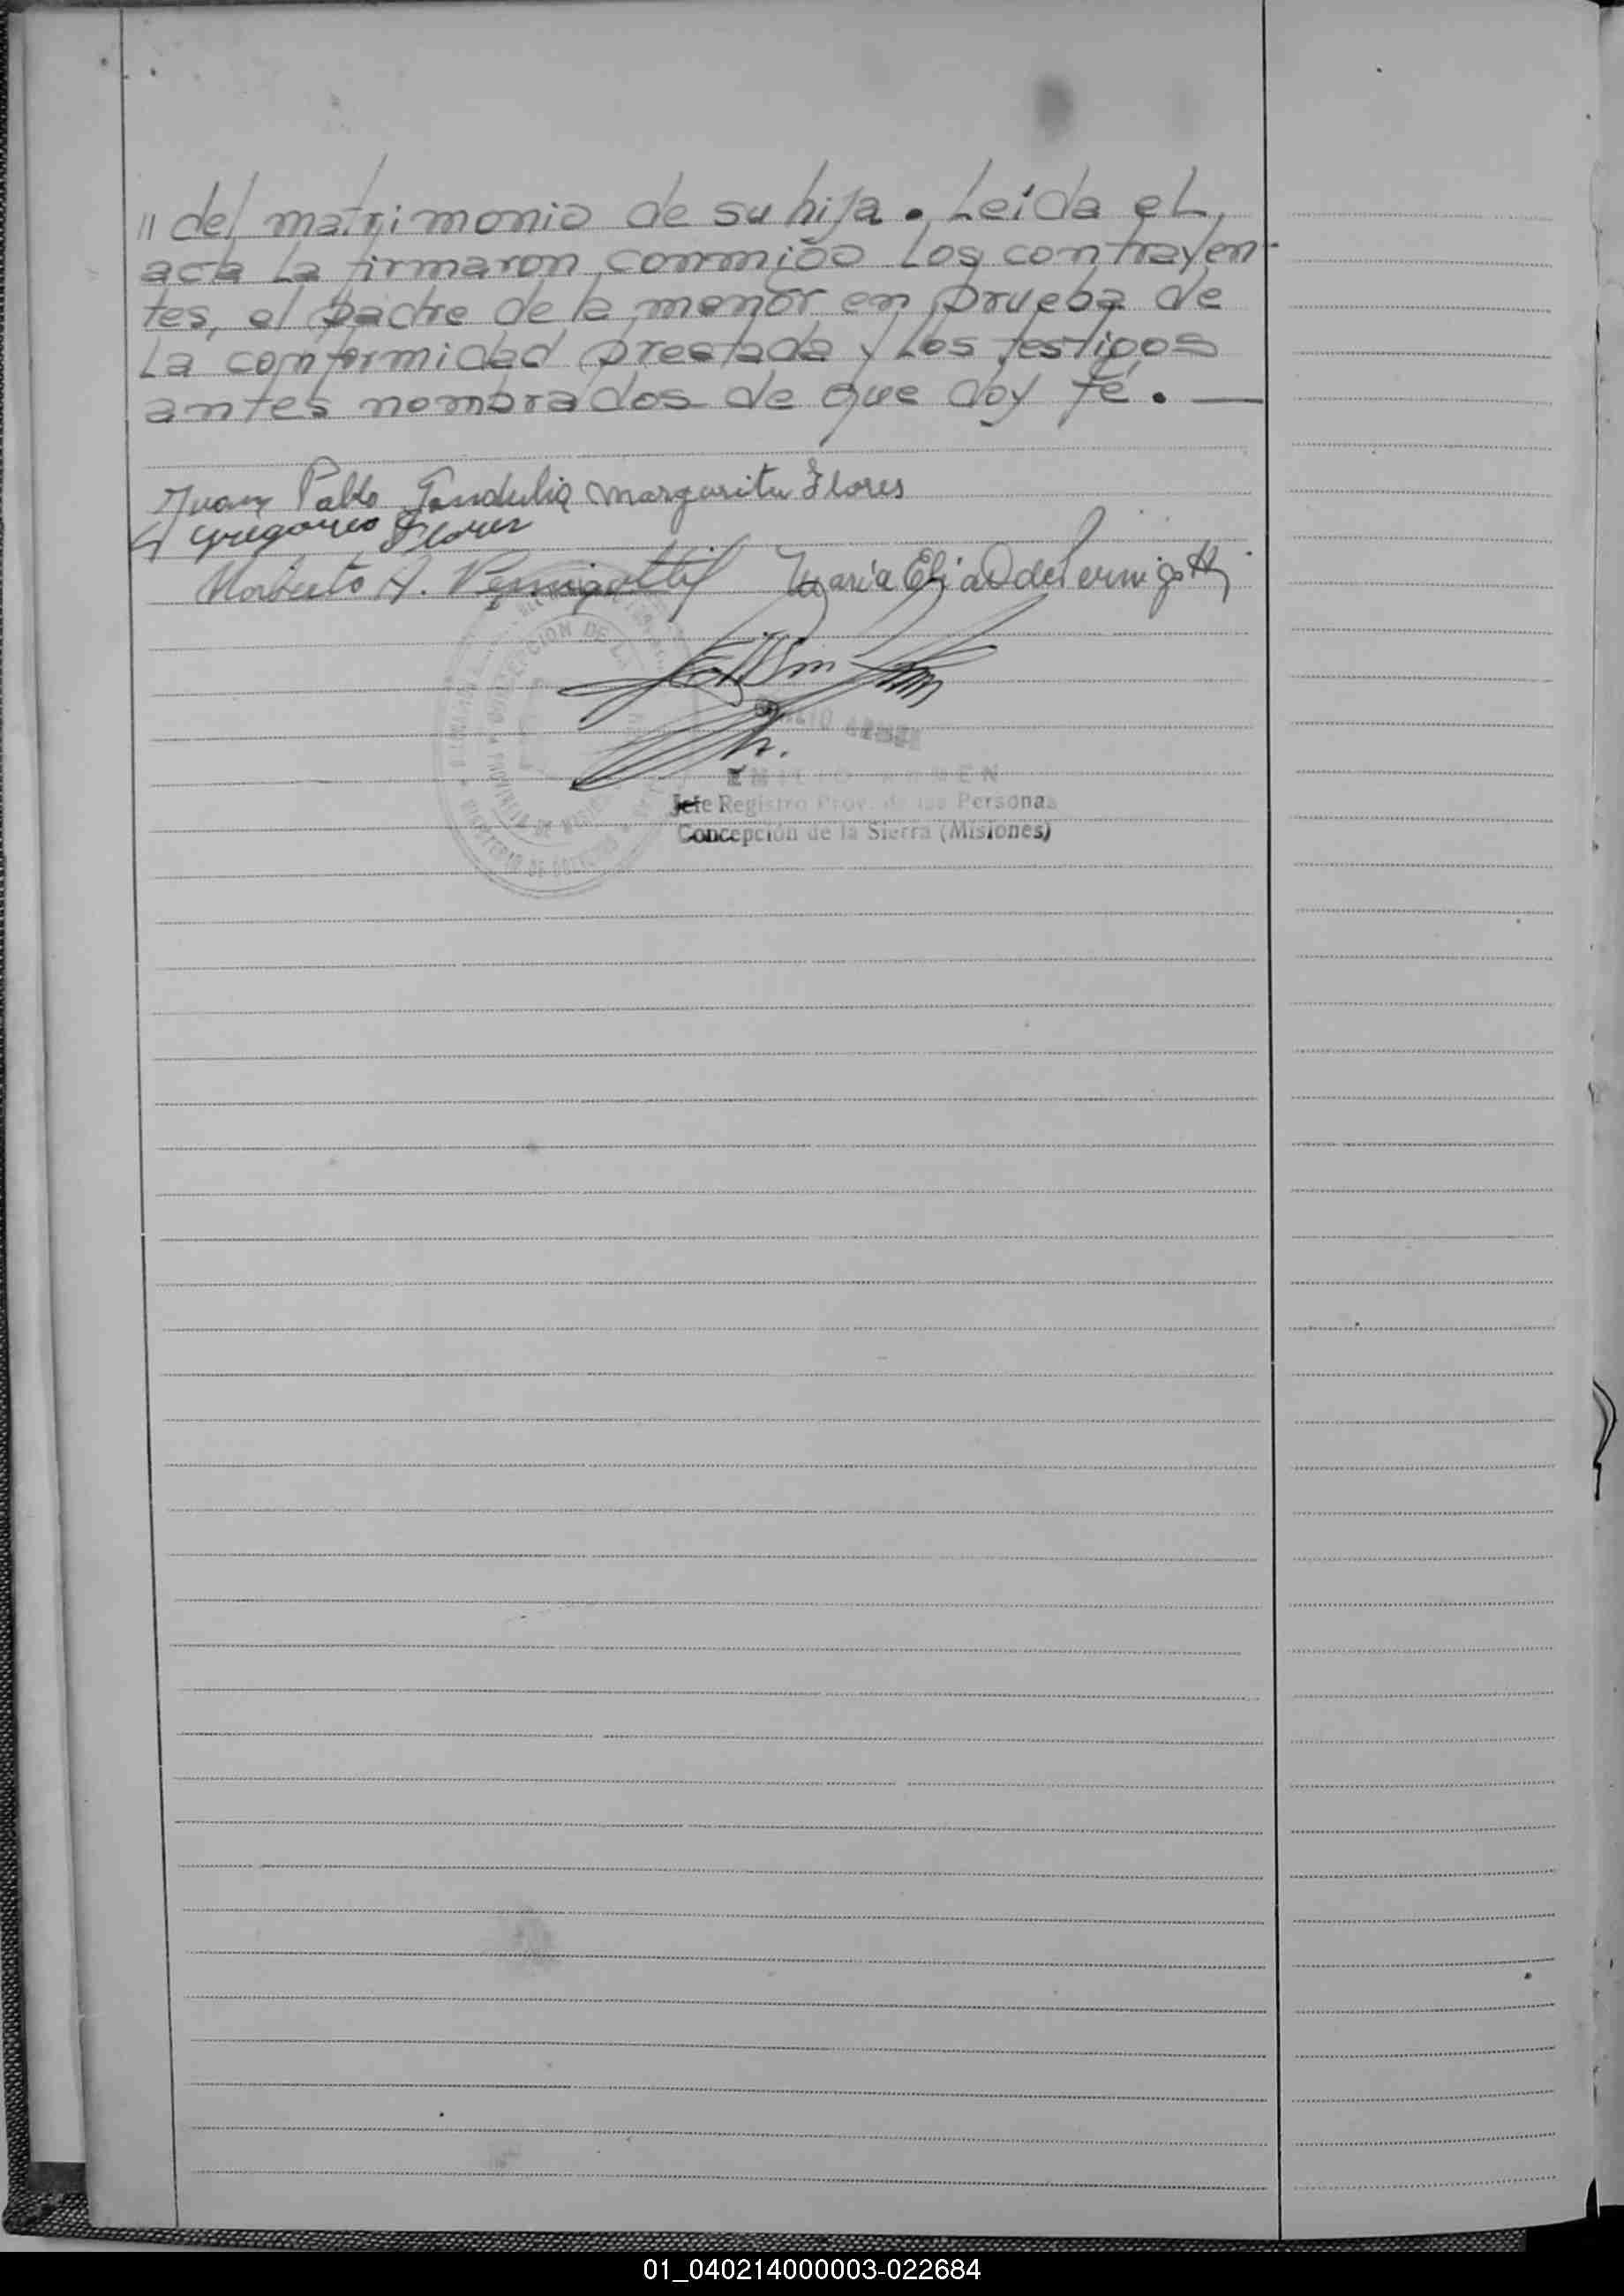 " del matrimonio de su hija. Leída el
acta la firmaron conmigo los contrayen-
tes, el padre de la menor en prueba de
la conformidad prestada y los testigos
antes nombrados de que doy fé. —
Juan Pablo Margarita Flores
Gregorio Flores
Norberto A. Pernigotti María Elia O de Pernigotti
CONCEPCION DE LA
PROVINCIA DE MISIONES
Jefe Registro Prov. de las Personas
Concepción de la Sierra (Misiones)
01_040214000003-022684